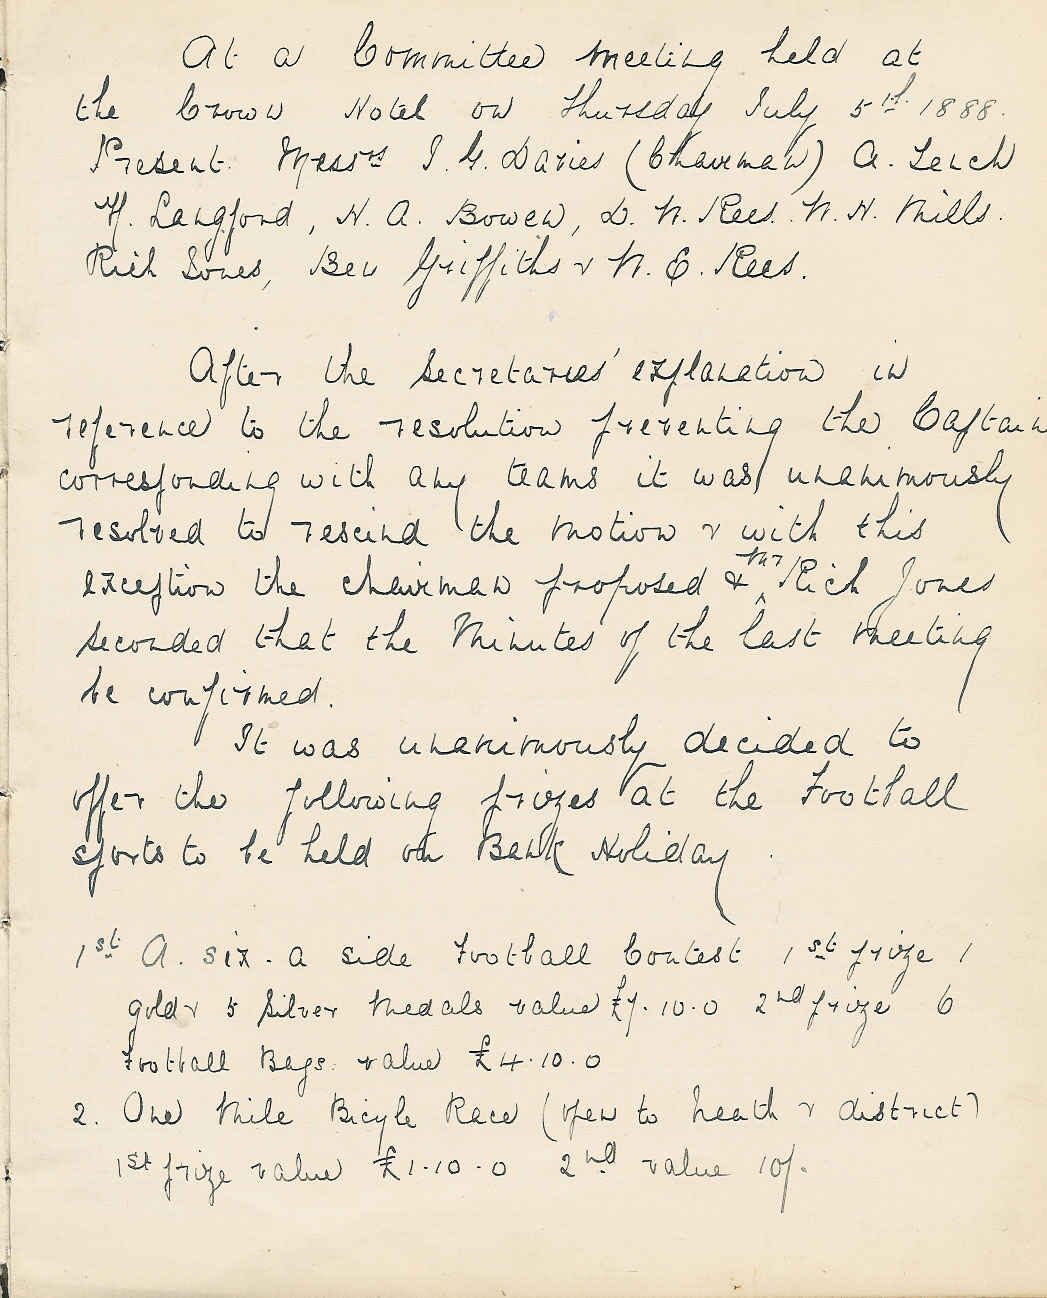 At a Committee meeting held at
the Crown Hotel on Thursday July 5th 1888.
Present. Messrs J. G. Davies (Chairman) A. Leach
H. Langford, H. A. Bowen, D. W. Rees. W. H. Mills.
Rich Jones, Ben Griffiths & W. E. Rees.
After the Secretaries' explanation in
reference to the resolution preventing the Captain
corresponding with any teams it was unanimously
resolved to rescind the motion & with this
exception the chairman proposed & Mr Rich Jones
seconded that the Minutes of the last meeting
be confirmed.
It was unanimously decided to
offer the following prizes at the Football
sports to be held on Bank Holiday.
1st A. six. a side Football Contest 1st prize 1
gold & 5 Silver Medals value £7.10.0 2nd prize 6
Football Bags. value £4.10.0
2. One Mile Bicyle Race (open to Neath & district)
1st prize value £1.10.0 2nd value 10/.